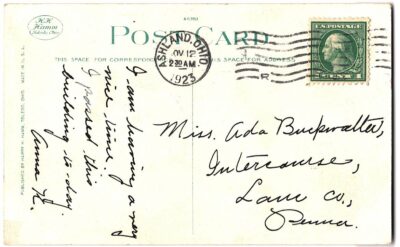 H.H.
Hamm
Toledo, Ohio.
POST CARD
THIS SPACE FOR CORRESPONDENCE
THIS SPACE FOR ADDRESS
ASHLAND, OHIO.
NOV 12
2 30 AM
1923
R
1
I am having a very
nice time.
I passed this
building to-day.
Anna K.
Miss. Ada Buckwalter,
Intercourse,
Lanc Co.,
Penna.
PUBLISHED BY HARRY H. HAMM, TOLEDO, OHIO. MADE IN U.S.A.